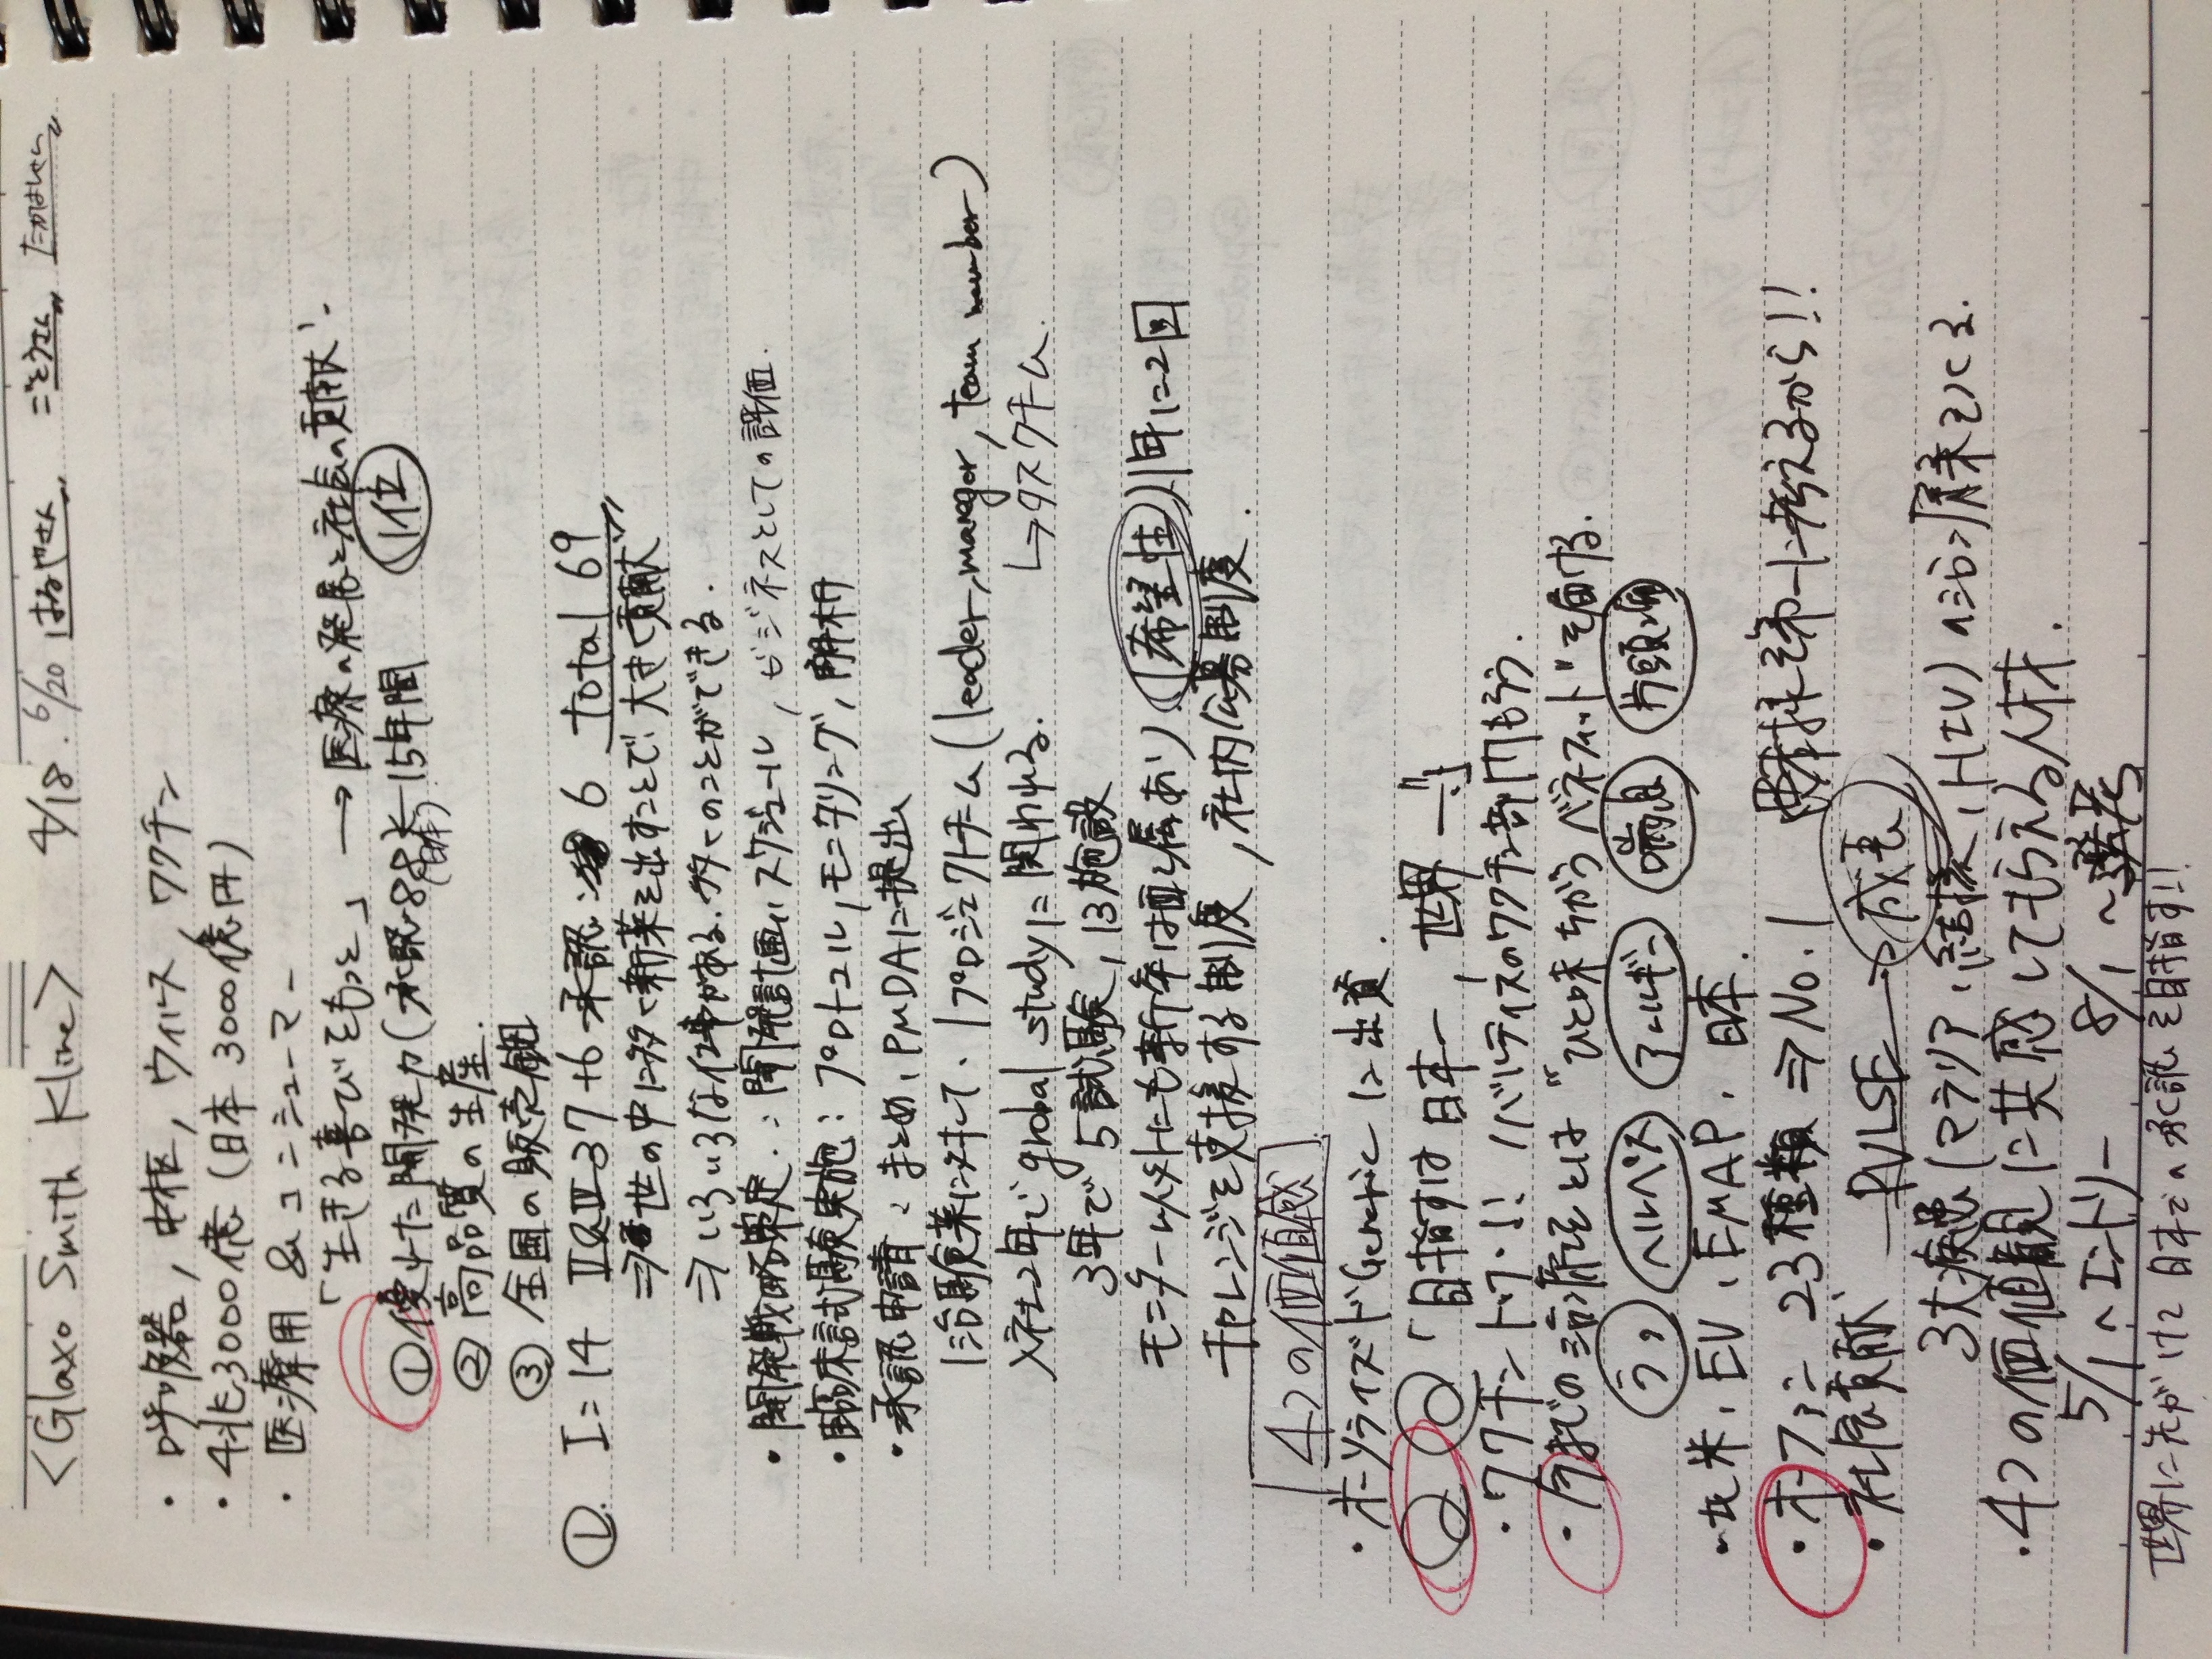 <Glaxo Smith Kline> 4/18. 6/20 はるやさん ごとうさん たかはしさん
・呼吸器, 中枢, ウイルス, ワクチン
・4兆3000億 (日本 3000億円)
・医療用 & コンシューマー
「生きる喜びをもっと」 → 医療の発展と社会の貢献
① 優れた開発力 (承認88 ← 15年間 1位
(日本)
② 高品質の生産.
③ 全国の販売網
①. I=14 II&III 37+6 承認: 6 total 69
⇒世の中に多く新薬を出すことで、大きく貢献
⇒いろいろな仕事がある. 多くのことができる.
・開発戦略策定.: 開発計画, スケジュール, ビジネスとしての評価.
・臨床試験実施: プロトコル, モニタリング, 解析
・承認申請: まとめ, PMDAに提出
1治験薬に対して、1プロジェクトチーム (leader, manegor, team number)
入社2年で global studyに関われる. ↳タスクチーム.
3年で 5試験, 13施設
モニター以外にも新卒は配属あり (希望性) 1年に2回
チャレンジを支援する制度, 社内公募制度.
4つの価値感
・オーソライズドGenericに出資.
「目指すは 日本一, 世界一!!」
・ワクチントップ!! ノバルティスのワクチン部門もらう.
・今までの治療とは "ひと味ちがうベネフィット"を届ける.
うつ ヘルペス アレルギー 喘息 片頭痛
・北米, EU, EMAP, 日本.
・オーファン 23種類 ⇒ No.1 患者様を第一に考えるから!!
・社会貢献 PULSE → 成長
3大疾患 (マラリア, 結核, HIV) の治療薬をつくる.
・4つの価値観に共感してもらえる人材.
5/1〜エントリー 8/1〜選考
世界に先がけて日本での承認を目指す!!